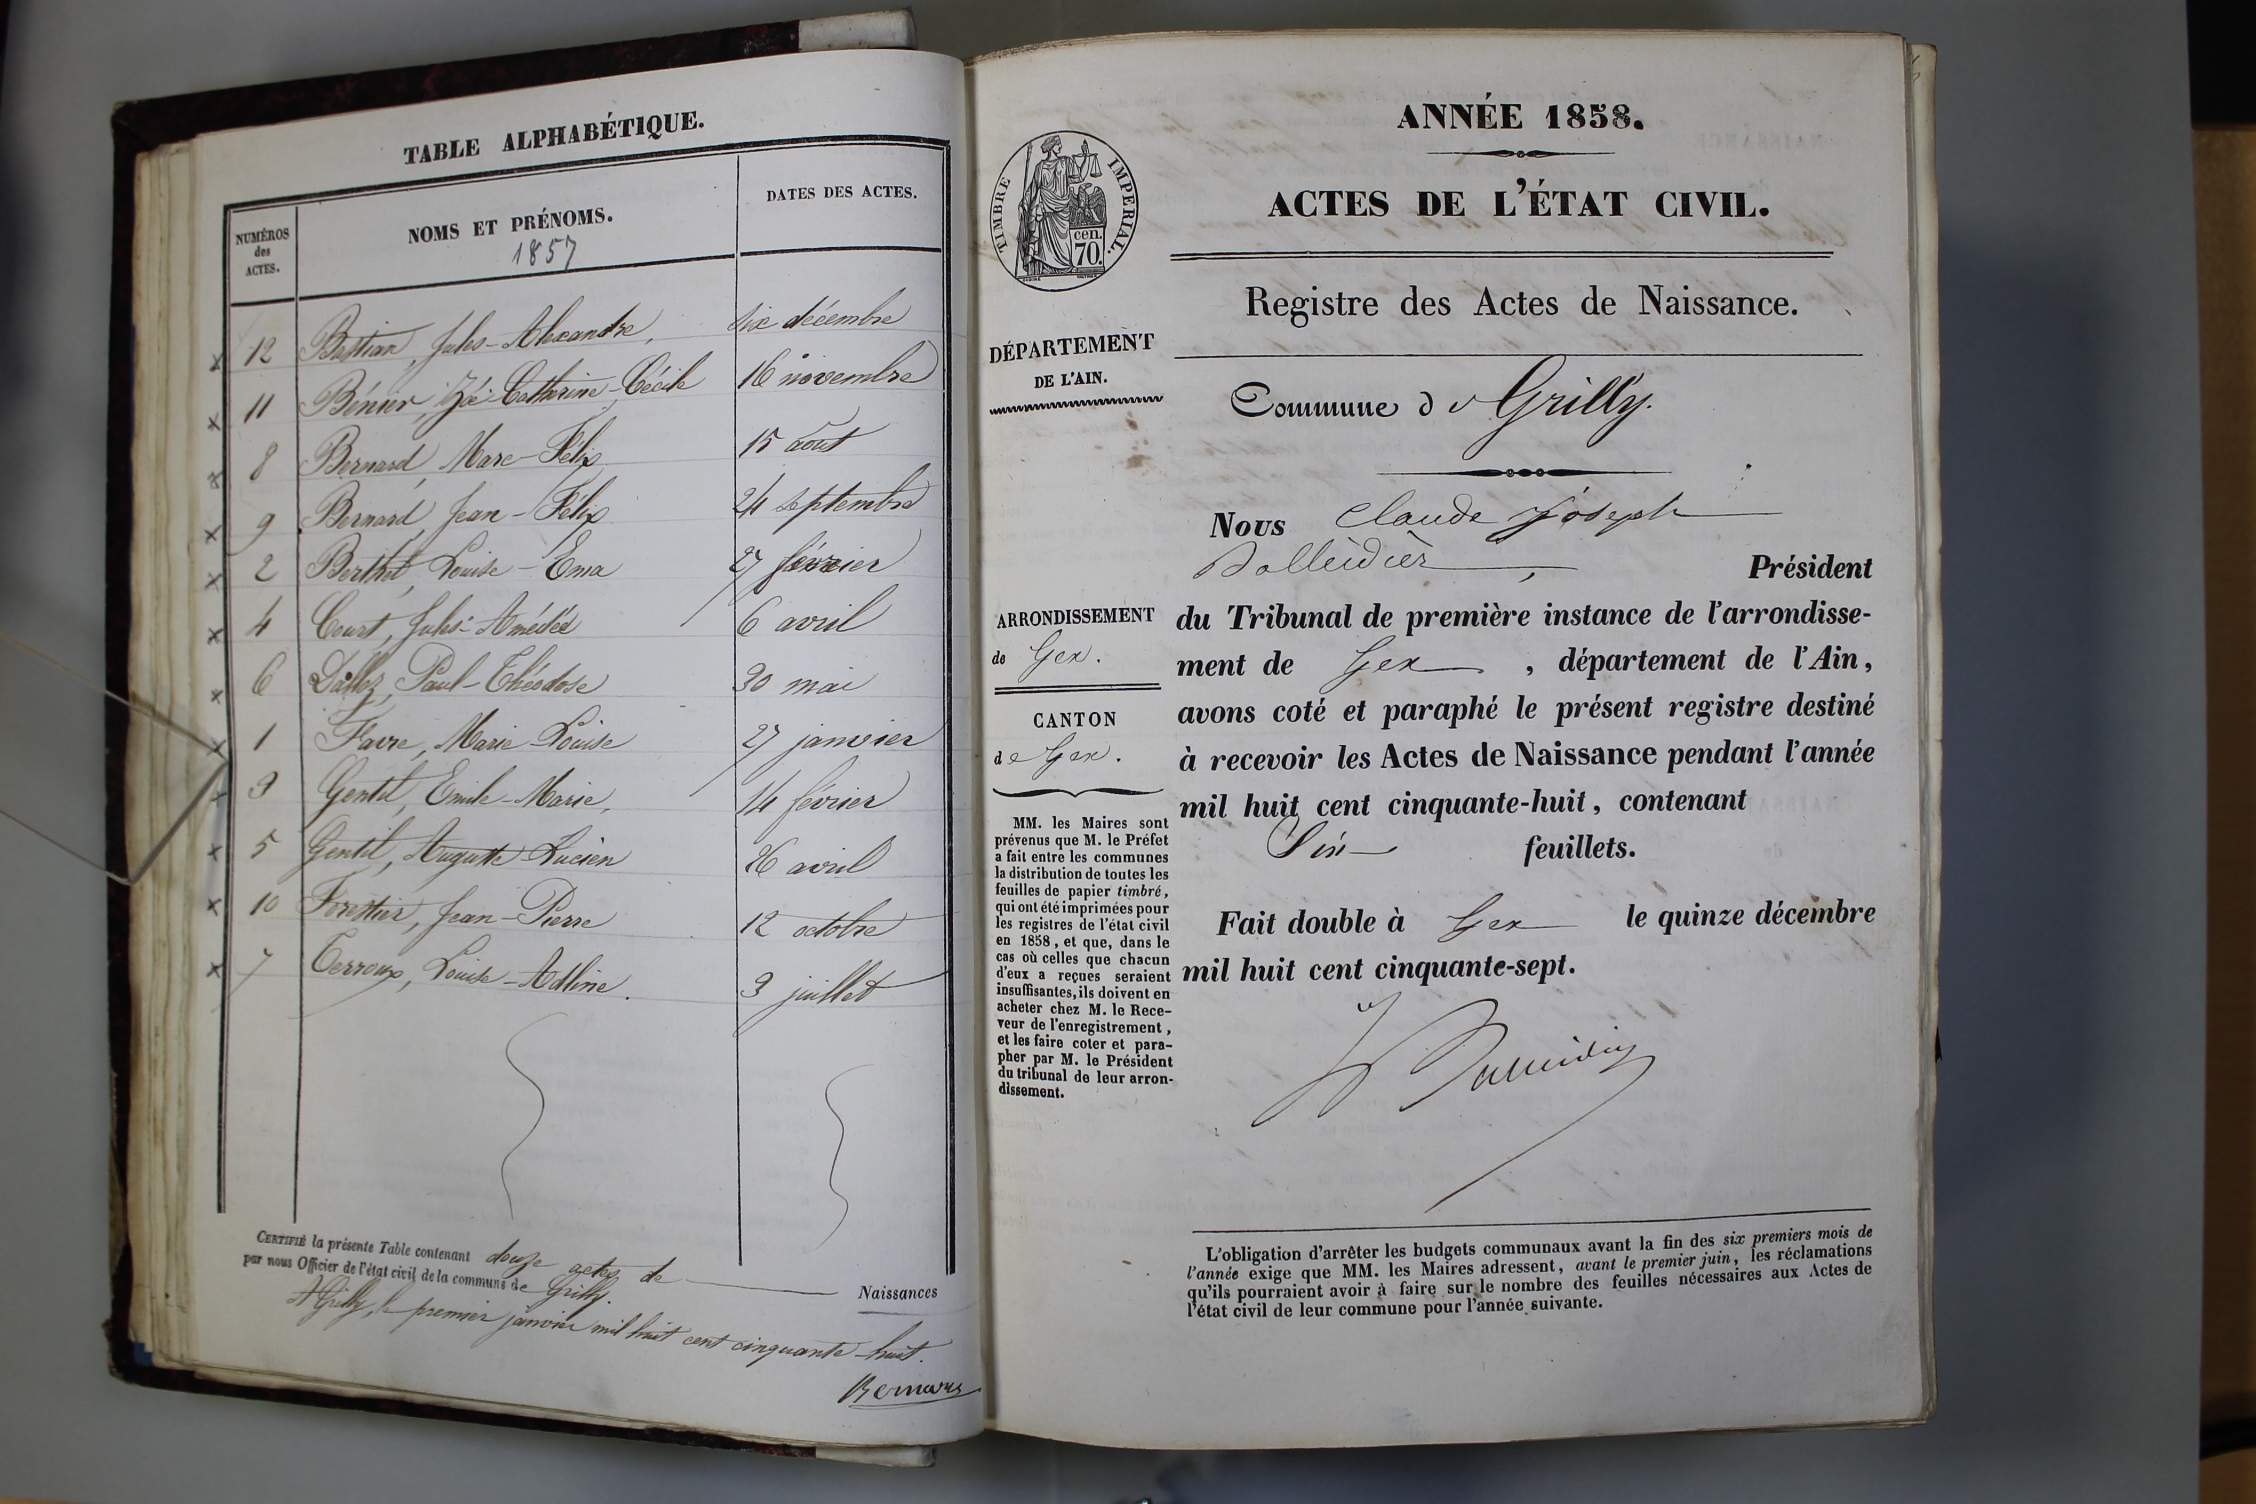 TABLE ALPHABÉTIQUE.
NUMÉROS
des
ACTES.
NOMS ET PRÉNOMS.
1857
DATES DES ACTES.
12 Bastian, Jules-Alexandre, six décembre
11 Bénier, Zoé-Catherine-Cécile 16 novembre
8 Bernard, Marc-Félix 15 août
9 Bernard, Jean-Félix 24 septembre
2 Berthet, Louise-Ema 27 février
4 Court, Jules-Amédée 6 avril
6 Paul-Théodose 30 mai
1 Favre, Marie-Louise 27 janvier
3 Gentil, Emile-Marie, 14 février
5 Gentil, Auguste Lucien 26 avril
10 Forestier, Jean-Pierre 12 octobre
7 Terroux, Louise-Adline. 3 juillet
CERTIFIÉ la présente Table contenant douze actes de Naissances
par nous Officier de l'état civil de la commune de Grilly.
A Grilly, le premier janvier mil huit cent cinquante-huit.
Bernard
ANNÉE 1858.
ACTES DE L'ÉTAT CIVIL.
TIMBRE IMPERIAL.
cen.
70.
Registre des Actes de Naissance.
DÉPARTEMENT
DE L'AIN.
Commune de Grilly.
Nous Claude Joseph
Balleidier, Président
du Tribunal de première instance de l'arrondisse-
ment de Gex, département de l'Ain,
avons coté et paraphé le présent registre destiné
à recevoir les Actes de Naissance pendant l'année
mil huit cent cinquante-huit, contenant
Six feuillets.
Fait double à Gex le quinze décembre
mil huit cent cinquante-sept.
ARRONDISSEMENT
de Gex.
CANTON
de Gex.
MM. les Maires sont
prévenus que M. le Préfet
a fait entre les communes
la distribution de toutes les
feuilles de papier timbré,
qui ont été imprimées pour
les registres de l'état civil
en 1858, et que, dans le
cas où celles que chacun
d'eux a reçues seraient
insuffisantes, ils doivent en
acheter chez M. le Rece-
veur de l'enregistrement,
et les faire coter et para-
pher par M. le Président
du tribunal de leur arron-
dissement.
L'obligation d'arrêter les budgets communaux avant la fin des six premiers mois de
l'année exige que MM. les Maires adressent, avant le premier juin, les réclamations
qu'ils pourraient avoir à faire sur le nombre des feuilles nécessaires aux Actes de
l'état civil de leur commune pour l'année suivante.